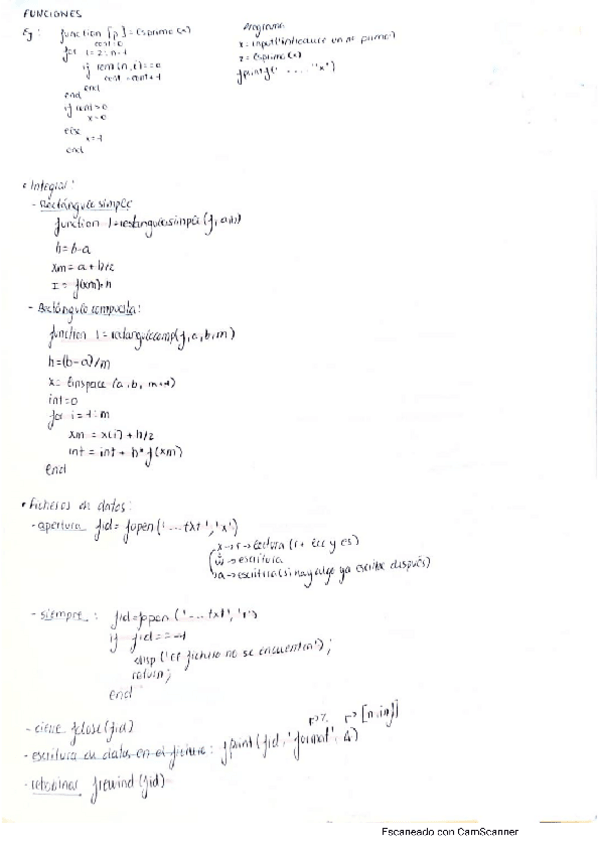 FUNCIONES
Ej: function [p] = Esprimo (x)
cont=0
for i=2:n-1
if rem(n,i)==0
cont=cont+1
end
end
if cont>0
x=0
else
x=1
end
Programa
x=input('introduce un nº primo')
z=Esprimo(x)
fprintf(' ..... 'x')
• Integral:
- Rectángulo simple
function I=rectangulosimple(f,a,b)
h=b-a
xm=a+h/2
I= f(xm)*h
- Rectángulo compuesta:
function I=rectangulocomp(f,a,b,m)
h=(b-a)/m
x= linspace (a,b, m+1)
int=0
for i=1:m
xm = x(i) + h/2
int = int + h* f(xm)
end
• Ficheros en datos:
- apertura fid= fopen('...txt','x')
x→r→lectura (r+ lec y es)
w→escritura
a→escritura (si hay algo ya escribe después)
- siempre: fid=fopen ('...txt', 'r')
if fid==-1
disp ('el fichero no se encuentra');
return;
end
- cierre fclose(fid)
- escritura de datos en el fichero: fprint(fid,'format', A)
- rebobinar frewind(fid)
Escaneado con CamScanner